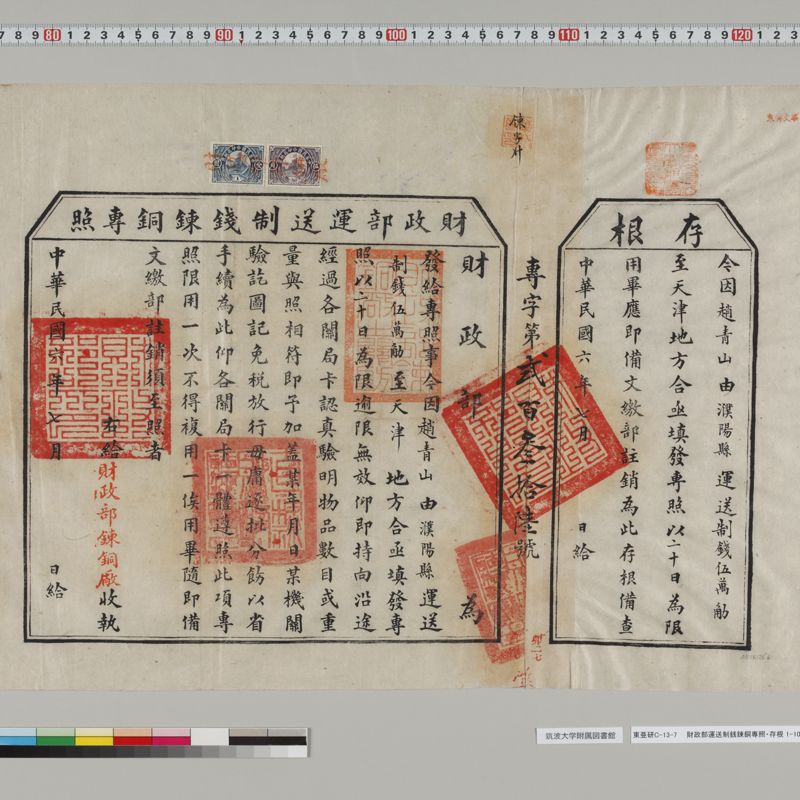 存根
令因趙青山由濮陽縣運送制錢伍萬觔
至天津地方合亟填發專照以二十日為限
用畢應即備文繳部註銷為此存根備查
中華民國六年七月 日給
專字第貳百叁拾陸號
財政部運送制錢鍊銅專照
財政部為
發給專照事今因趙青山由濮陽縣運送
制錢伍萬觔至天津地方合亟填發專
照以二十日為限逾限無效仰即持向沿途
經過各關局卡認真驗明物品數目或重
量與照相符即予加蓋某年月日某機關
驗訖圖記免稅放行毋庸逐批分飭以省
手續為此仰各關局卡一體遵照此項專
照限用一次不得複用一俟用畢隨即備
文繳部註銷須至照者
右給財政部鍊銅廠收執
中華民國六年七月 日給
筑波大学附属図書館
東亜研C-13-7 財政部運送制銭鍊銅專照・存根 1-10